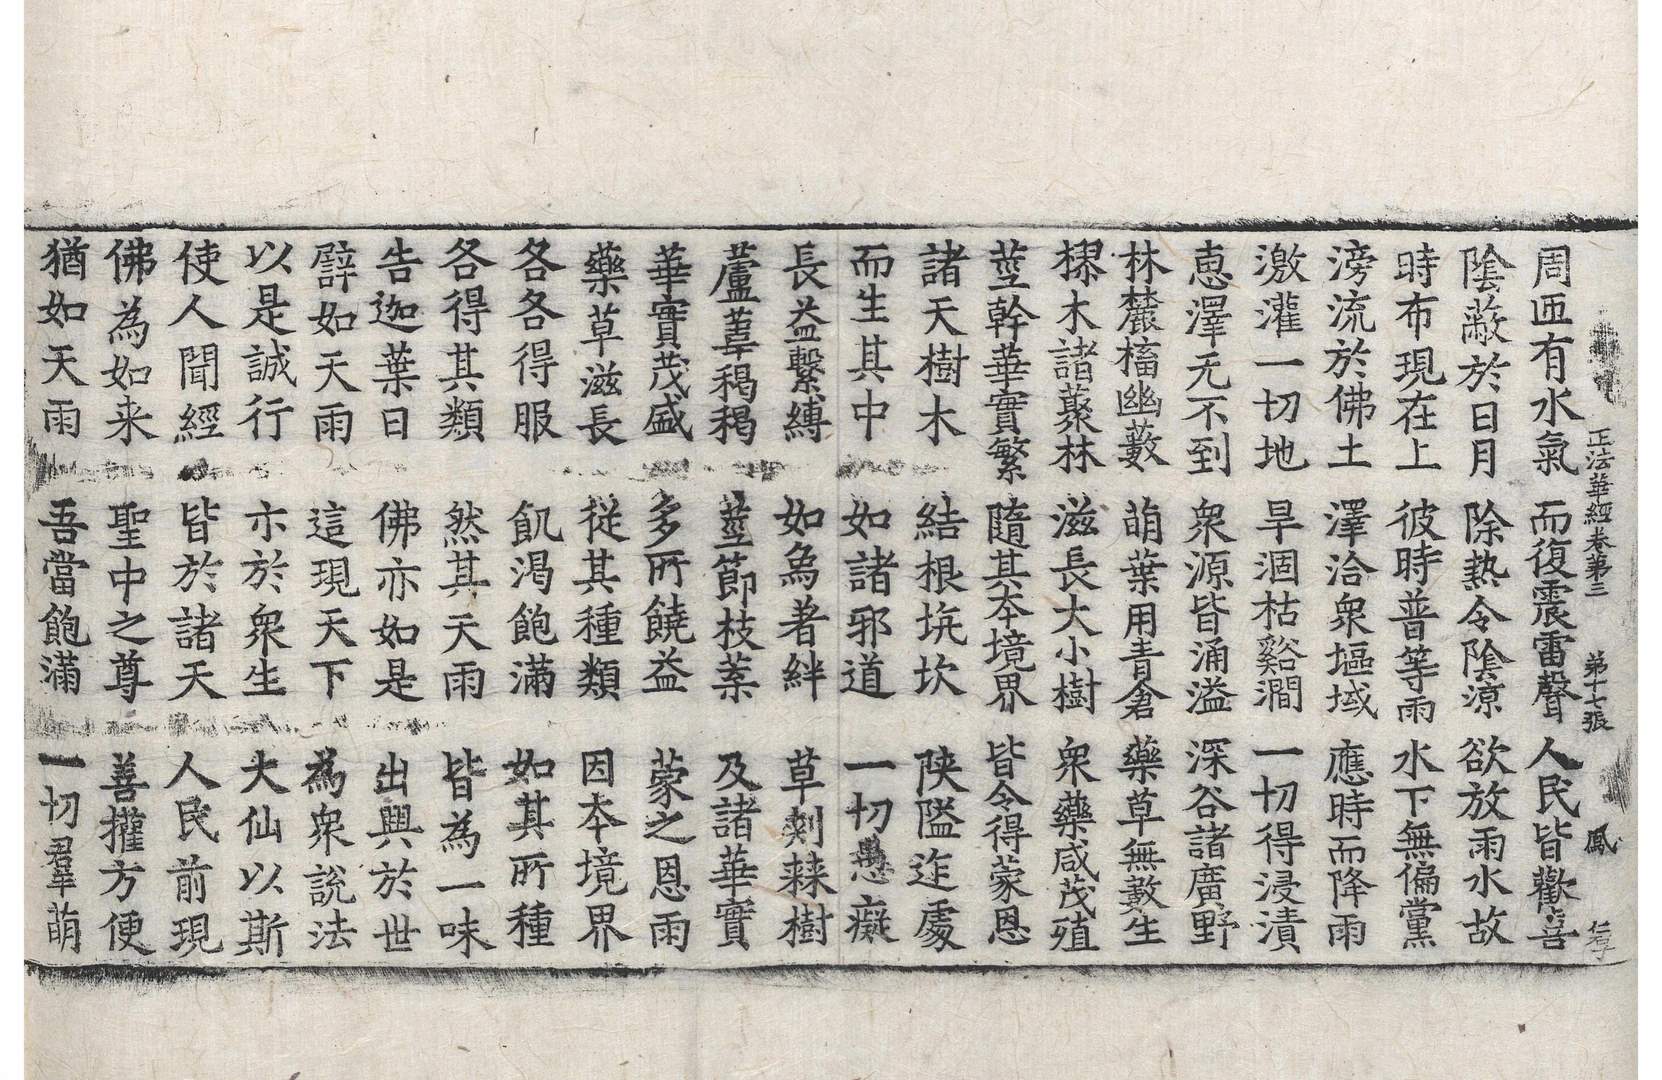 正法華經卷第三 第十七張 鳳 孝
周匝有水氣 而復震雷聲 人民皆歡喜
陰蔽於日月 除熱令陰涼 欲放雨水故
時布現在上 彼時普等雨 水下無偏黨
滂流於佛土 澤洽衆塸域 應時而降雨
激灌一切地 旱涸枯谿澗 一切得浸漬
恵澤无不到 衆源皆涌溢 深谷諸廣野
林麓穡幽藪 萌葉用青倉 藥草無數生
樛木諸藂林 滋長大小樹 衆藥咸茂殖
莖幹華實繁 隨其夲境界 皆令得蒙恩
諸天樹木 結根坑坎 陜隘迮處
而生其中 如諸邪道 一切愚癡
長益繫縛 如象著絆 草刺棘樹
蘆葦稠稠 莖節枝葉 及諸華實
華實茂盛 多所饒益 蒙之恩雨
藥草滋長 從其種類 因夲境界
各各得服 飢渴飽滿 如其所種
各得其類 然其天雨 皆為一味
告迦葉曰 佛亦如是 出興於世
譬如天雨 這現天下 為衆說法
以是誠行 亦於衆生 大仙以斯
使人聞經 皆於諸天 人民前現
佛為如来 聖中之尊 善攉方便
猶如天雨 吾當飽滿 一切群萌